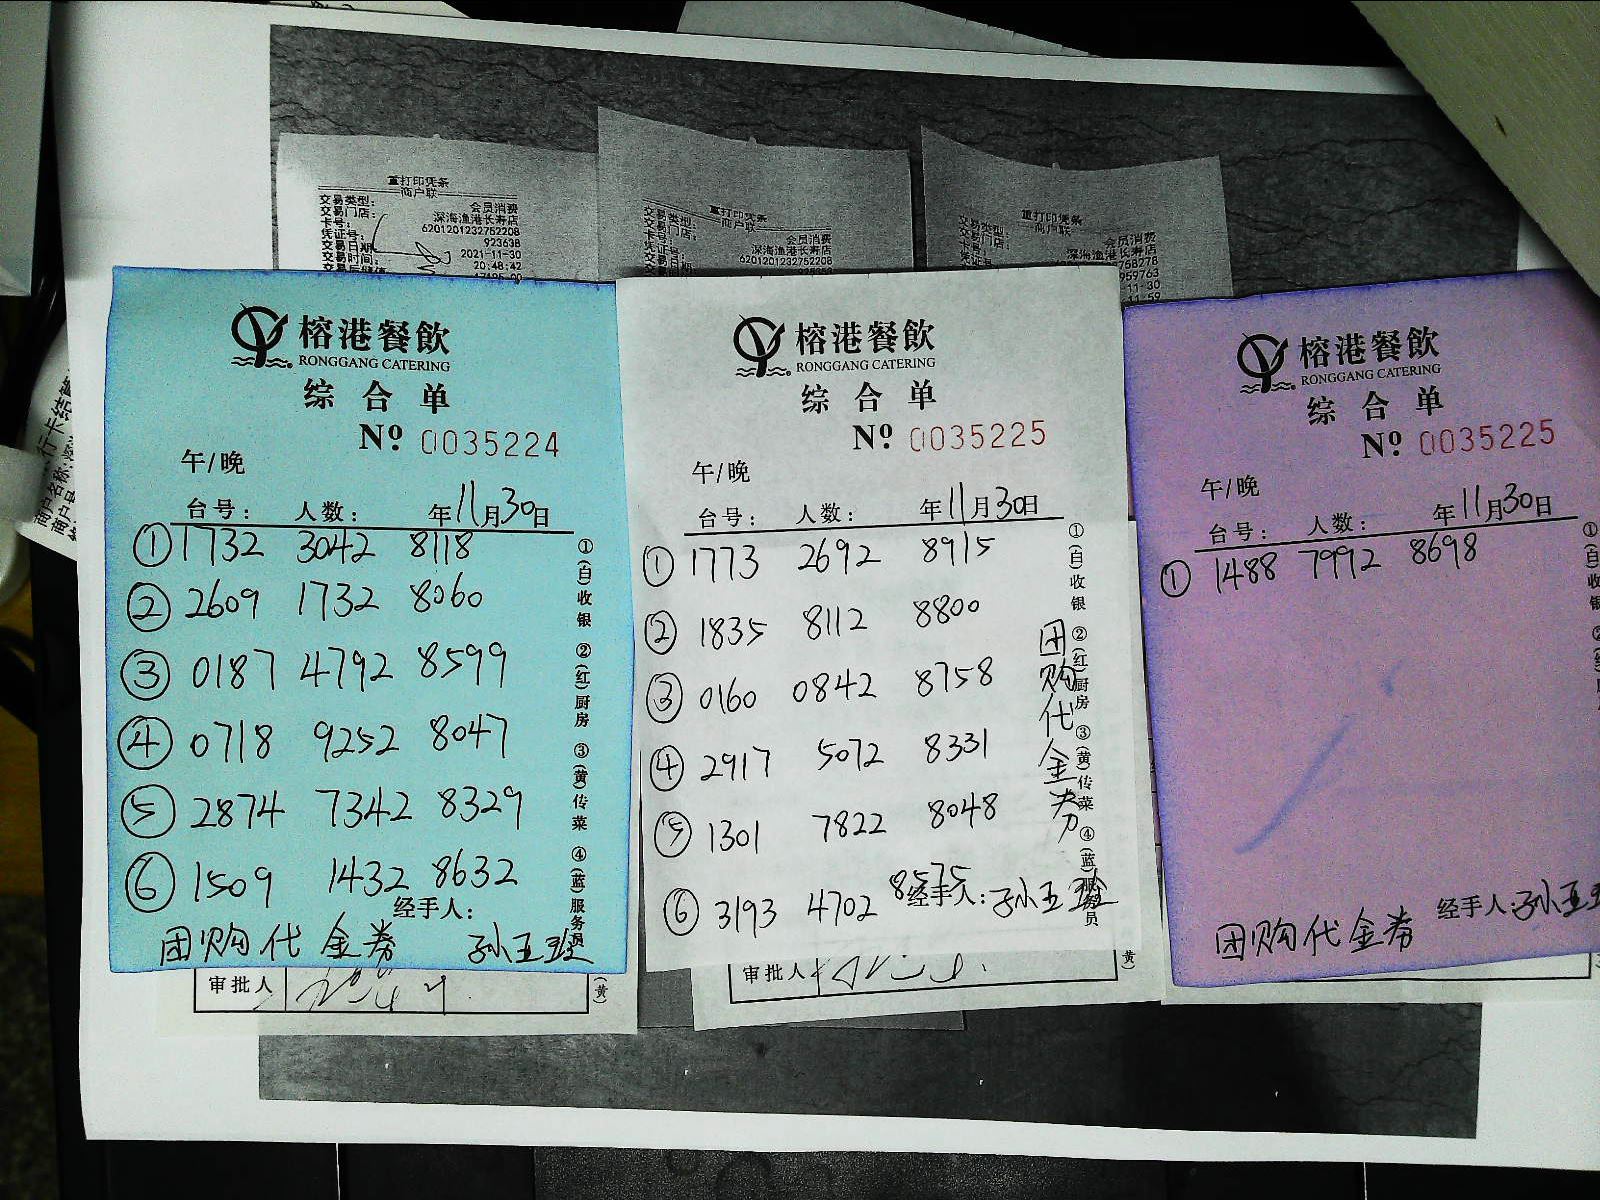 重打印凭条
商户联
交易类型: 会员消费
交易门店: 深海渔港长寿店
卡号: 6201201232752208
凭证号: 923638
交易日期: 2021-11-30
交易时间: 20:48:42
重打印凭条
商户联
交易类型: 会员消费
交易门店: 深海渔港长寿店
卡号: 6201201232752208
凭证号
重打印凭条
商户联
交易类型: 会员消费
交易门店: 深海渔港长寿店
758278
959763
11-30
榕港餐飲
RONGGANG CATERING
综合单
Nº 0035224
午/晚
台号: 人数: 年11月30日
① 1732 3042 8118
② 2609 1732 8060
③ 0187 4792 8599
④ 0718 9252 8047
⑤ 2874 7342 8329
⑥ 1509 1432 8632
经手人:
团购代金券 孙玉
①(白)收银 ②(红)厨房 ③(黄)传菜 ④(蓝)服务员
审批人
(黄)
榕港餐飲
RONGGANG CATERING
综合单
Nº 0035225
午/晚
台号: 人数: 年11月30日
① 1773 2692 8915
② 1835 8112 8800
③ 0160 0842 8758
④ 2917 5072 8331
⑤ 1301 7822 8048
⑥ 3193 4702 8575
经手人: 孙玉
团购代金券
①(白)收银 ②(红)厨房 ③(黄)传菜 ④(蓝)服务员
审批人
(黄)
榕港餐飲
RONGGANG CATERING
综合单
Nº 0035225
午/晚
台号: 人数: 年11月30日
① 1488 7992 8698
经手人: 孙玉
团购代金券
①(白)收银